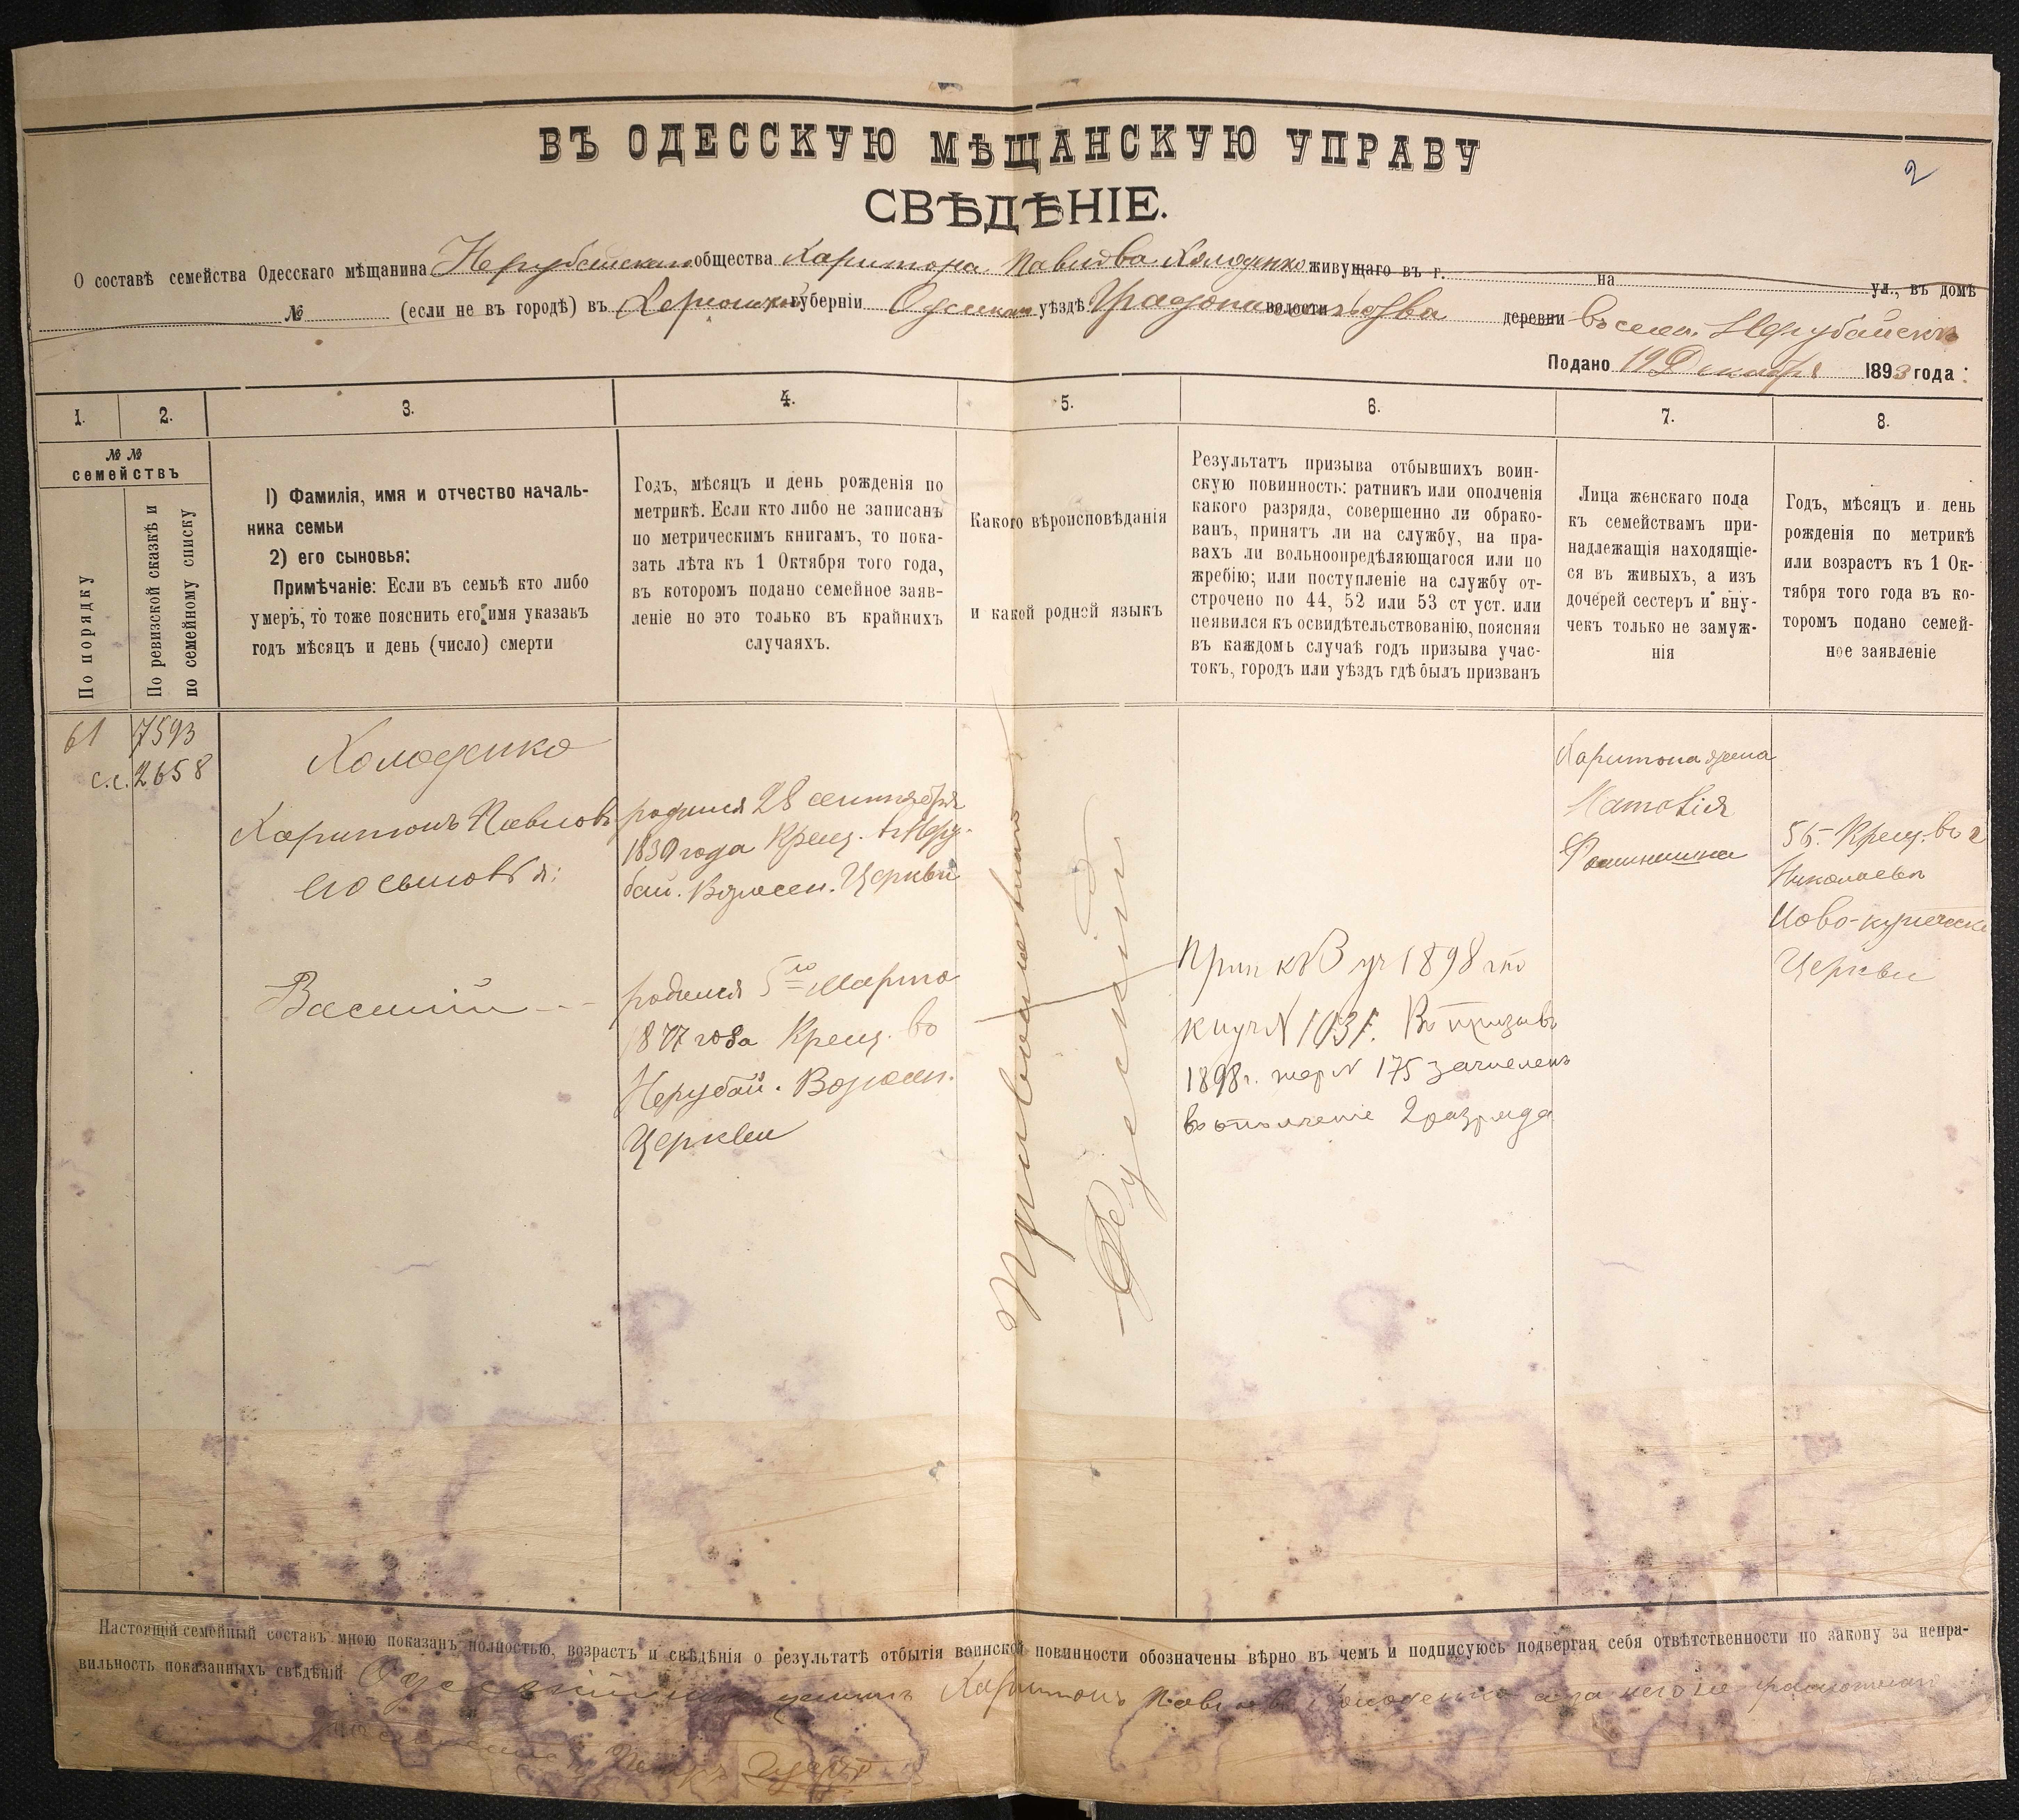 2
ВЪ ОДЕССКУЮ МѢЩАНСКУЮ УПРАВУ
СВѢДѢНІЕ.
О составѣ семейства Одесскаго мѣщанина Нерубайскаго общества Харитона Павлова Холоденко живущаго въ г. на ул., въ домѣ
№ (если не въ городѣ) въ Херсонской губерніи Одесскаго уѣздѣ Градоначальства волости деревни въ селѣ Нерубайскѣ
Подано 19 Декабря 1893 года
1. 2. 3. 4. 5. 6. 7. 8.
№№ семействъ
По порядку
По ревизской сказкѣ и
по семейному списку
1) Фамилія, имя и отчество началь-
ника семьи
2) его сыновья:
Примѣчаніе: Если въ семьѣ кто либо
умеръ, то тоже пояснить его имя указавъ
годъ мѣсяцъ и день (число) смерти
Годъ, мѣсяцъ и день рожденія по
метрикѣ. Если кто либо не записанъ
по метрическимъ книгамъ, то пока-
зать лѣта къ 1 Октября того года,
въ которомъ подано семейное заяв-
леніе но это только въ крайнихъ
случаяхъ.
Какого вѣроисповѣданія
и какой родной языкъ
Результатъ призыва отбывшихъ воин-
скую повинность: ратникъ или ополченія
какого разряда, совершенно ли обрако-
ванъ, принятъ ли на службу, на пра-
вахъ ли вольноопредѣляющагося или по
жребію; или поступленіе на службу от-
строчено по 44, 52 или 53 ст уст. или
неявился къ освидѣтельствованію, поясняя
въ каждомъ случаѣ годъ призыва учас-
токъ, городъ или уѣздъ гдѣ былъ призванъ
Лица женскаго пола
къ семействамъ при-
надлежащія находящіе-
ся въ живыхъ, а изъ
дочерей сестеръ и вну-
чекъ только не замуж-
нія
Годъ, мѣсяцъ и день
рожденія по метрикѣ
или возрастъ къ 1 Ок-
тября того года въ ко-
торомъ подано семей-
ное заявленіе
61 7593
с.с. 2658
Холоденко
Харитонъ Павловъ
его сыновья:
Василій
родился 28 сентября
1839 года Крещ. въ Неру-
бай. Вознесен. Церкви
родился 5го Марта
1877 года Крещ. во
Нерубай. Вознесен.
Церкви
Православнаго
Русскій
Прип къ 3 уч 1898
№ 1031. Въ призывъ
1898 г. жер № 175 зачисленъ
въ ополченіе 2 разряда
Харитона жена
56. Крещ. въ г
Николаевѣ
Ново-купеческ
Церкви
Настоящій семейный составъ мною показанъ полностью, возрастъ и свѣдѣнія о результатѣ отбытія воинской повинности обозначены вѣрно въ чемъ и подписуюсь подвергая себя отвѣтственности по закону за непра-
вильность показанныхъ свѣдѣній Одесскій мѣщанинъ Харитонъ Павловъ Холоденко а за него неграмотнаго